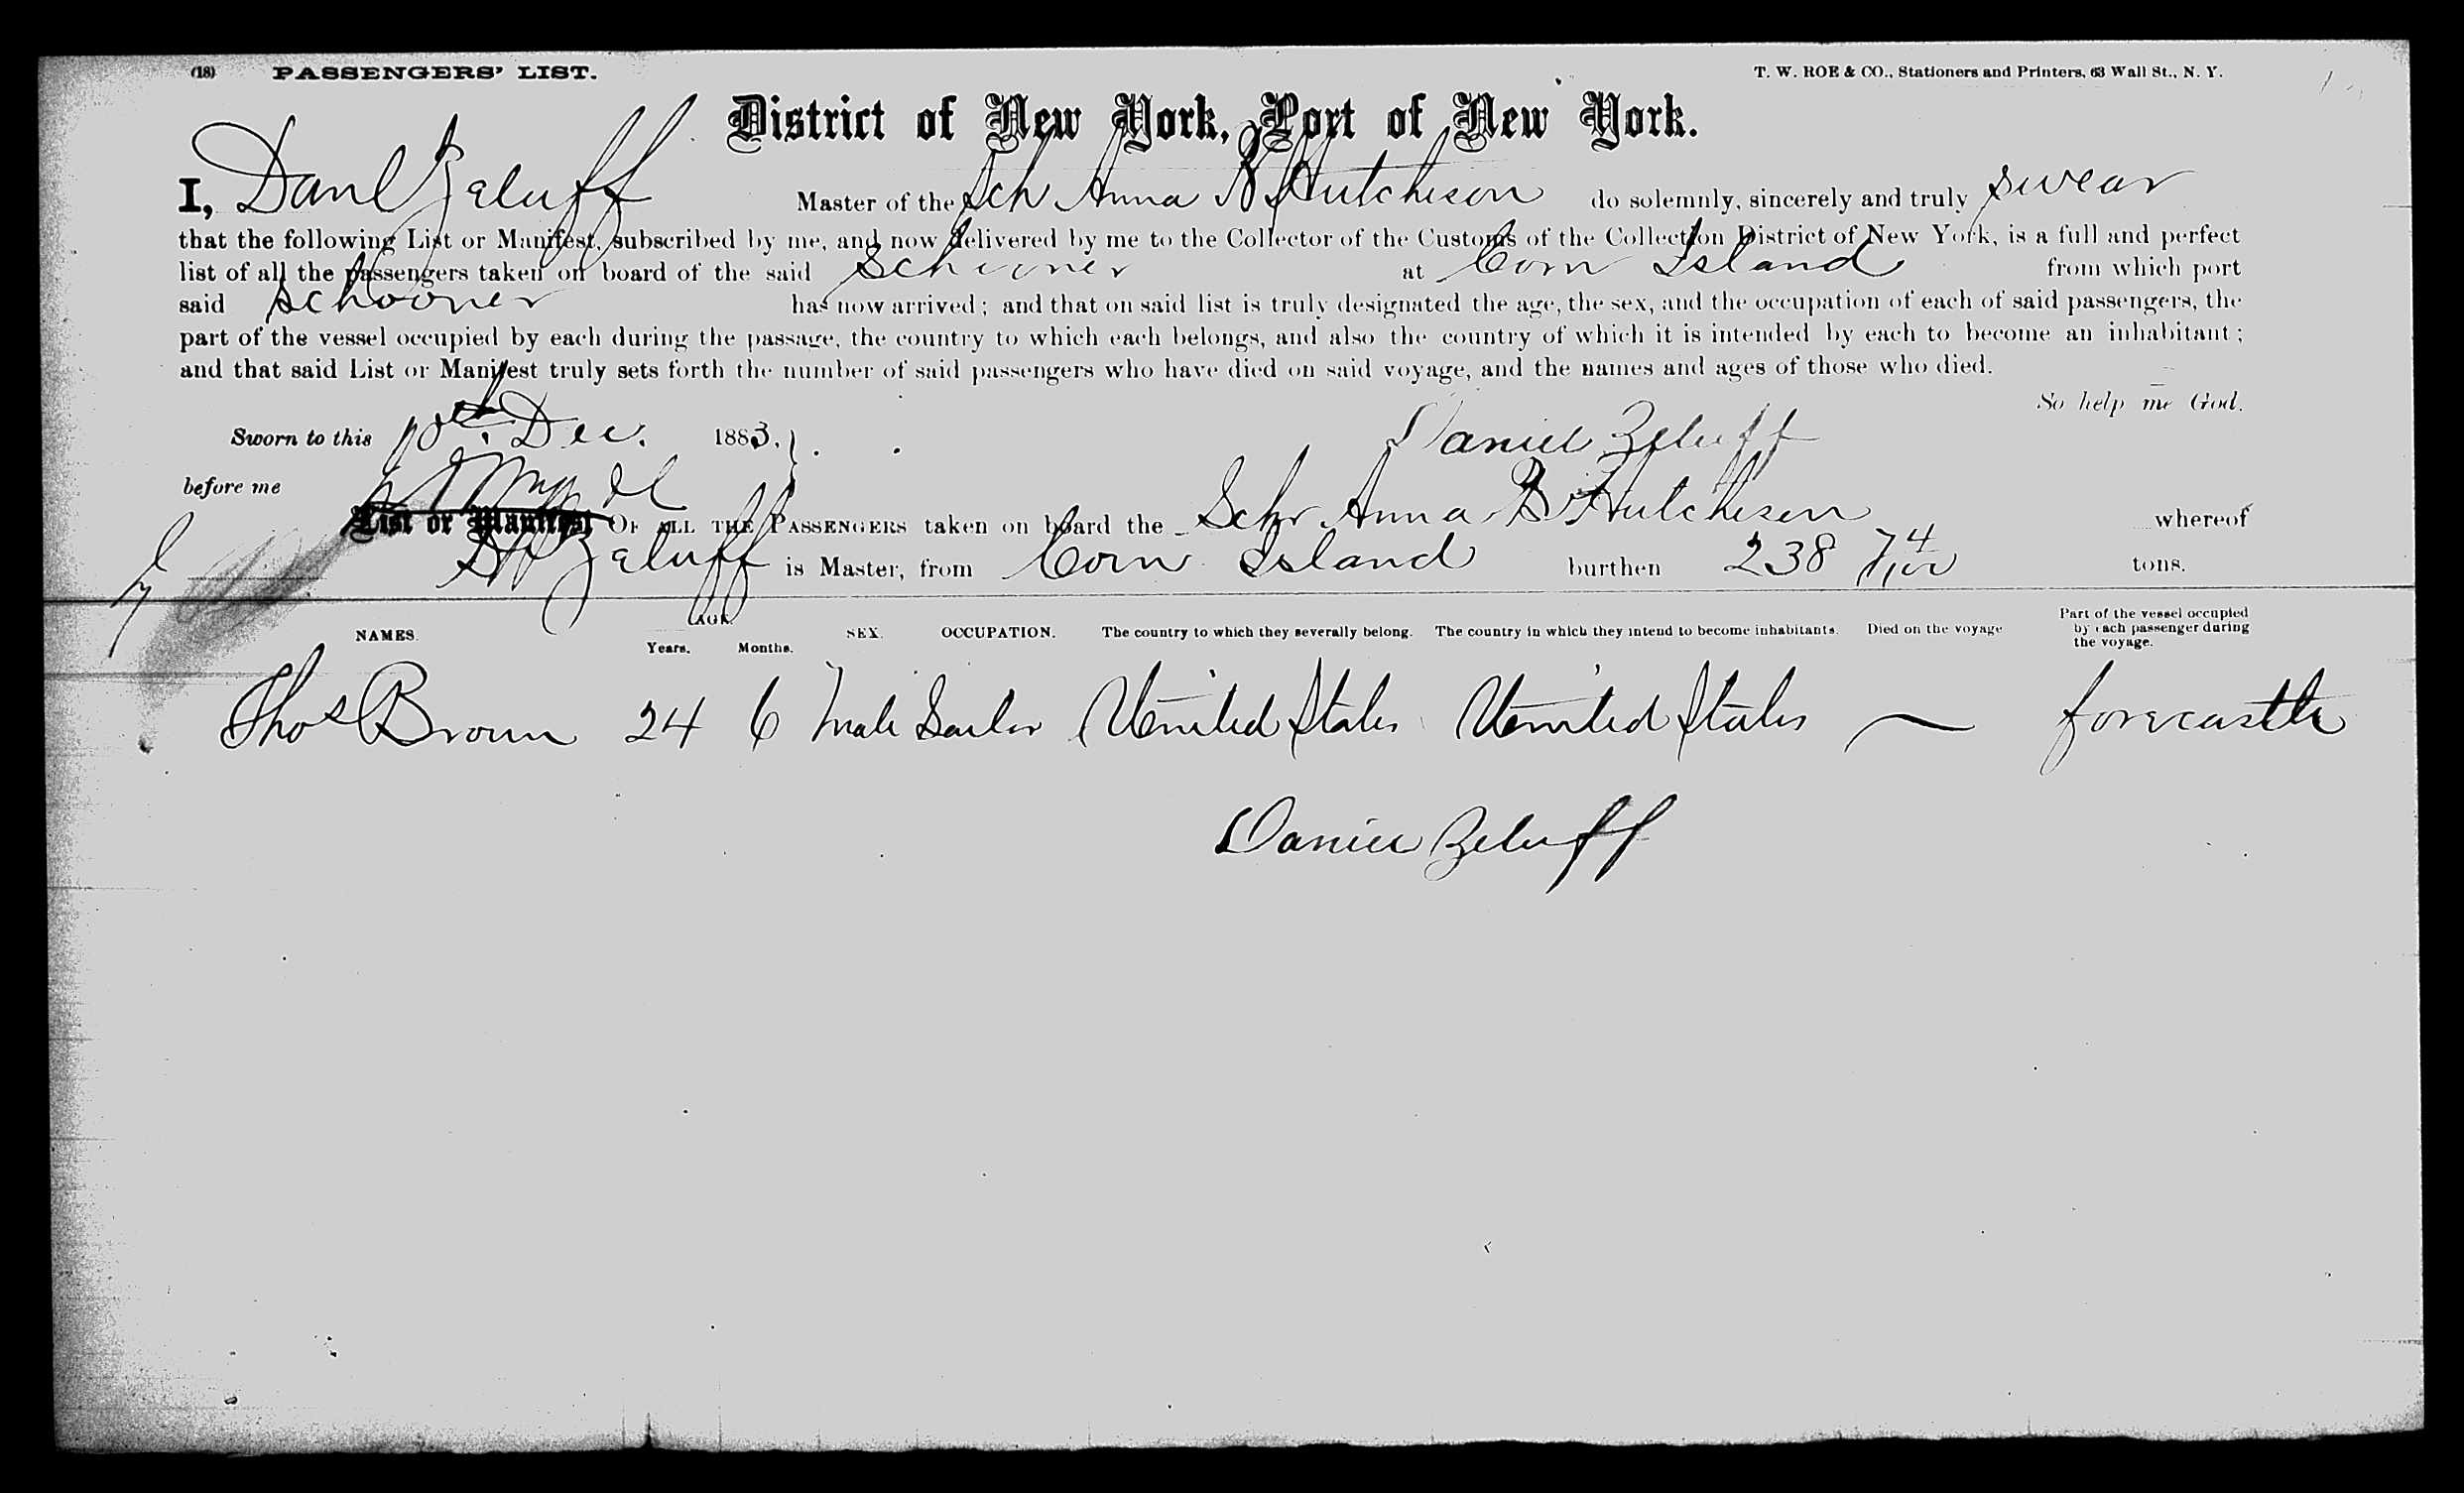 (18) PASSENGERS' LIST. T. W. ROE & CO., Stationers and Printers, 63 Wall St., N. Y.
District of New York, Port of New York.
I, Danl Zeluff Master of the Sch Anna B Hutchison do solemnly, sincerely and truly swear
that the following List or Manifest, subscribed by me, and now delivered by me to the Collector of the Customs of the Collection District of New York, is a full and perfect
list of all the passengers taken on board of the said Schooner at Corn Island from which port
said Schooner has now arrived; and that on said list is truly designated the age, the sex, and the occupation of each of said passengers, the
part of the vessel occupied by each during the passage, the country to which each belongs, and also the country of which it is intended by each to become an inhabitant;
and that said List or Manifest truly sets forth the number of said passengers who have died on said voyage, and the names and ages of those who died.
So help me God.
Sworn to this 10th. Dec. 1883. Daniel Zeluff
before me
List or Manifest OF ALL THE PASSENGERS taken on board the Schr Anna B Hutchison whereof
D Zeluff is Master, from Corn Island burthen 238 74/100 tons.
NAMES. AGE. Years. Months. SEX. OCCUPATION. The country to which they severally belong. The country in which they intend to become inhabitants. Died on the voyage Part of the vessel occupied by each passenger during the voyage.
Thos Brown 24 6 Male Sailor United States United States — forecastle
Daniel Zeluff